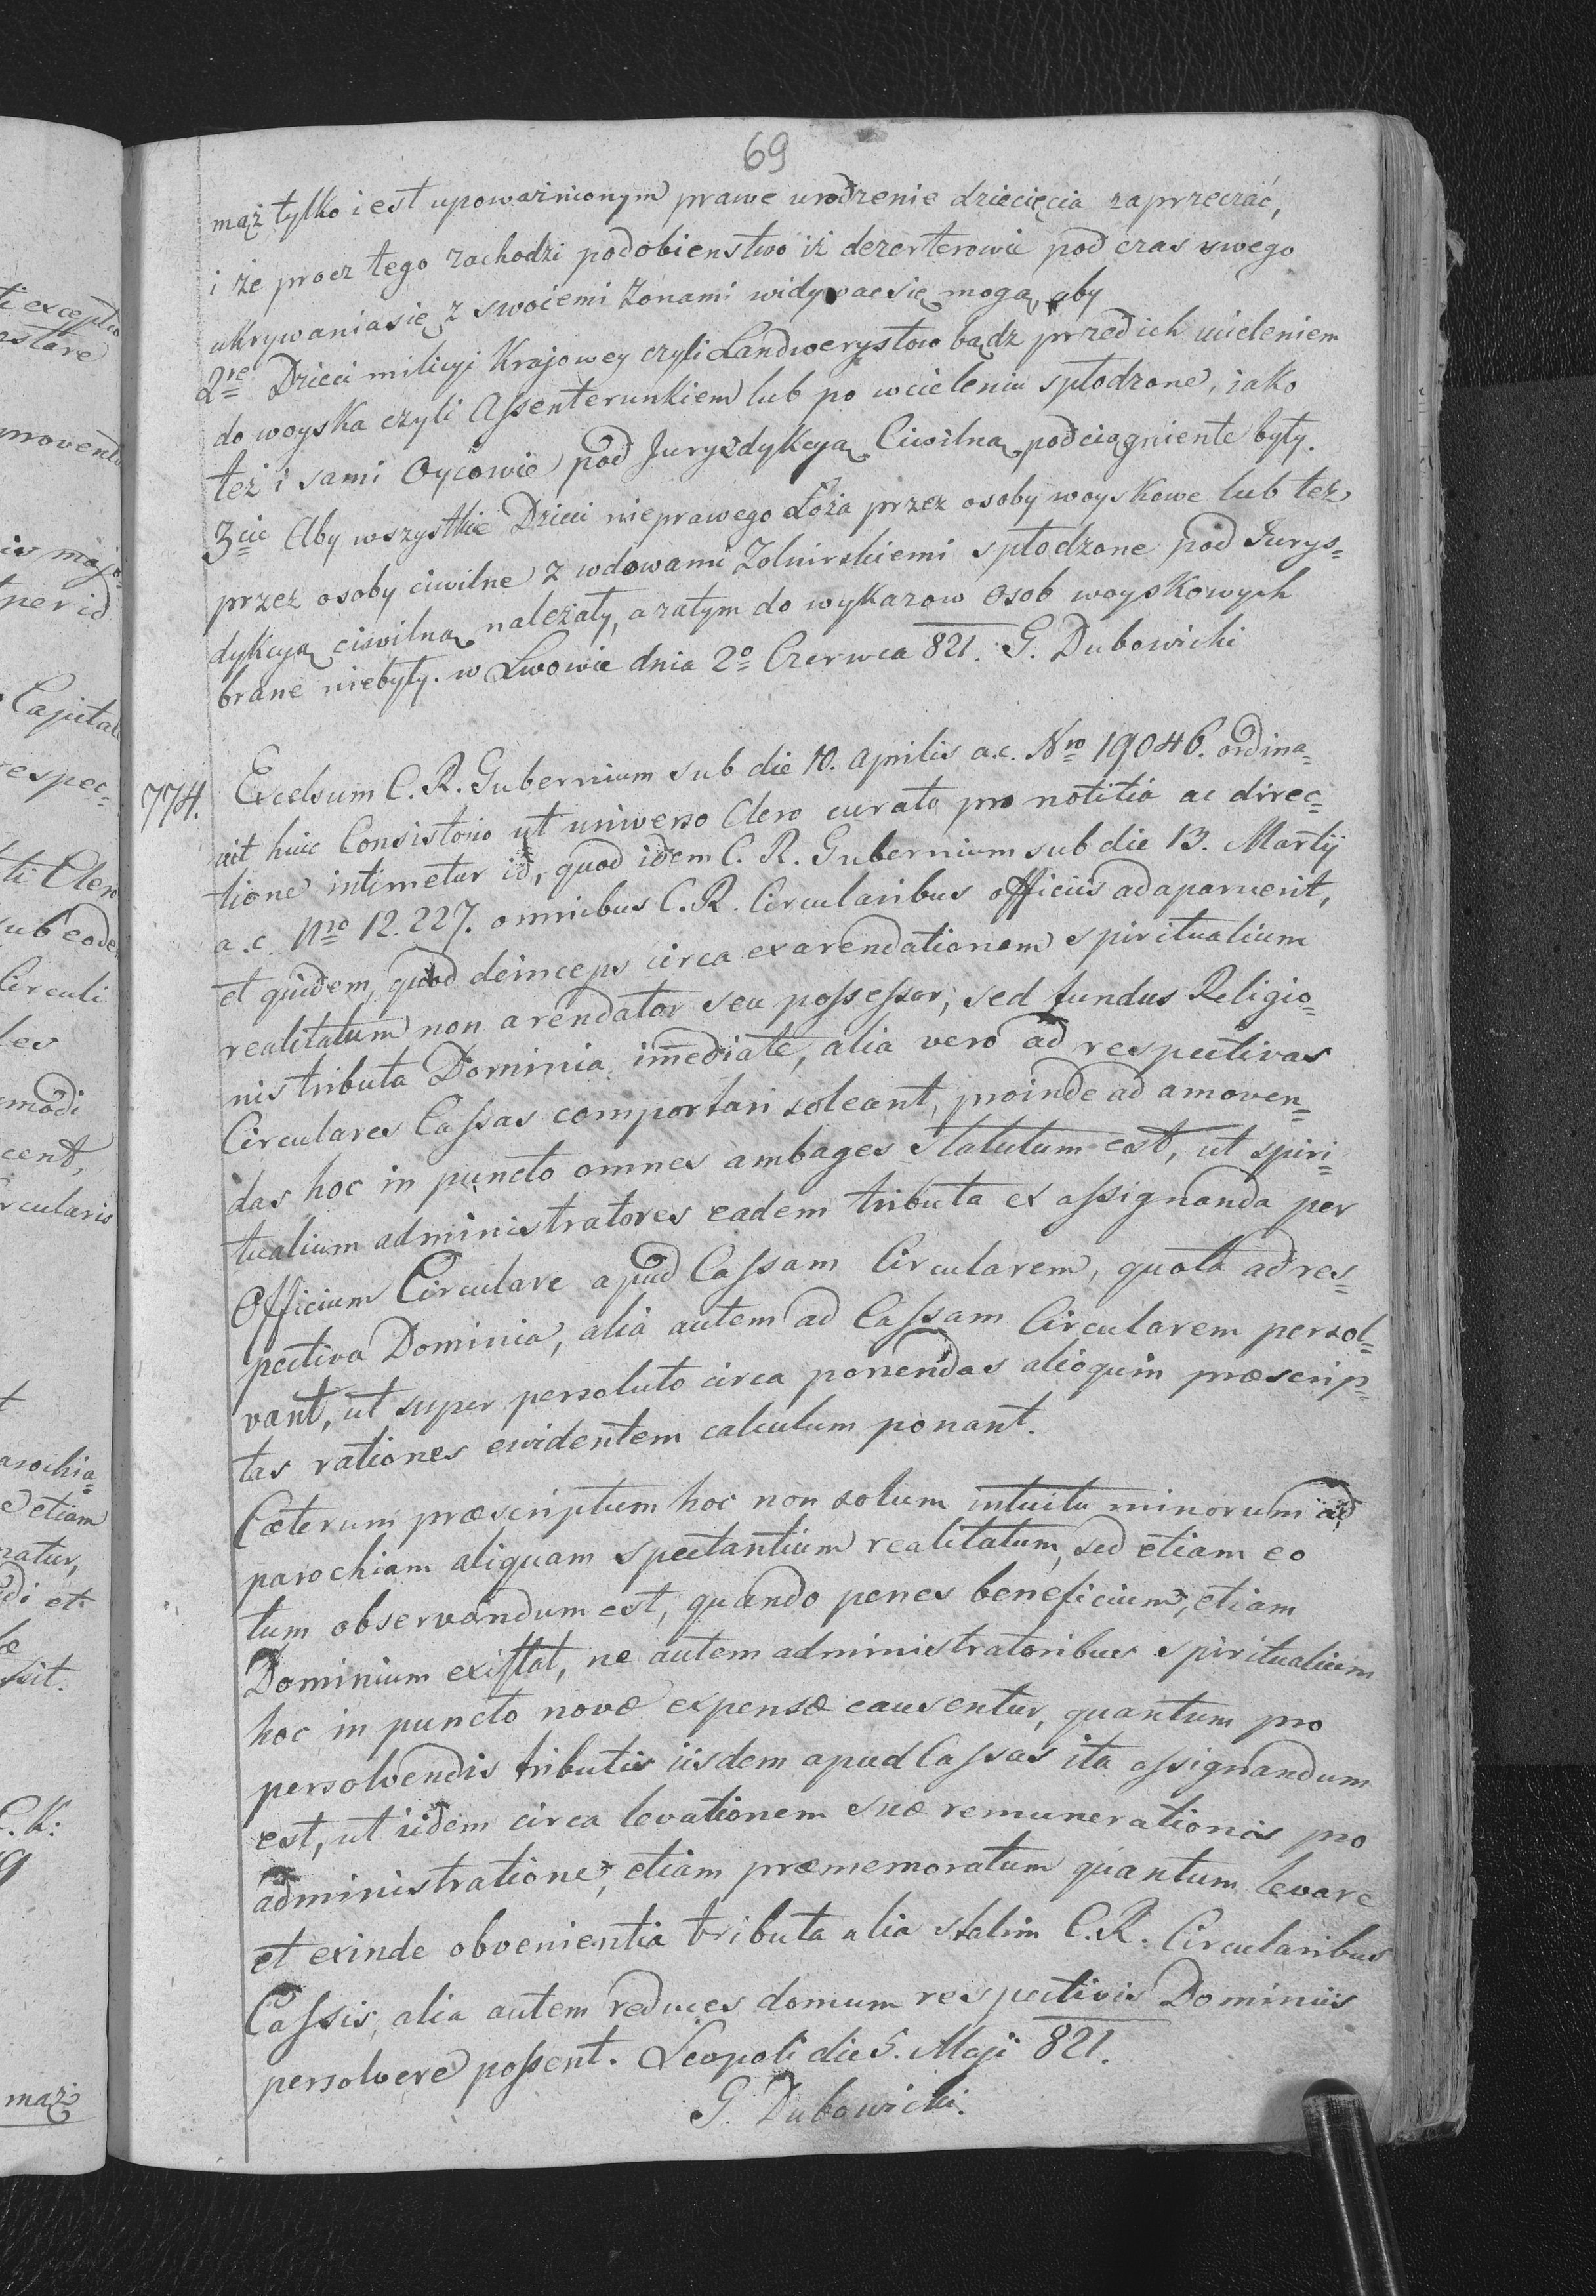 69
mąż tylko iest upoważnionym prawe urodzenie dziecięcia zaprzeczać,
i że procz tego zachodzi podobienstwo iż dezerterowie pod czas swego
ukrywaniasię z swoiemi żonami widywaćsię mogą, aby
2re Dzieci milicyi Krajowey czyli Landwerystow bądz przed ich wcieleniem
do woyska czyli Assenterunkiem lub po wcieleniu spłodzone, iako
też i sami Oycowie pod Juryzdykcyą Ciwilną podciągniente były.
3cie Aby wszystkie Dzieci nieprawego Łoża przez osoby woyskowe lub też
przez osoby ciwilne z wdowami Zolnirskiemi spłodzone pod Jurys=
dykcyą ciwilną należały, a zatym do wykazow osob woyskowych
brane niebyły. w Lwowie dnia 2o Czerwca 821. G. Dubowicki
774. Excelsum C. R. Gubernium sub die 10. Aprilis a.c. Nro 19046. ordina=
vit huic Consistorio ut universo Clero curato pro notitia ac direc=
tione intimetur id, quod idem C. R. Gubernium sub die 13. Martÿ
a.c. Nro 12.227. omnibus C. R. Circularibus officiis adaparuerit,
et quidem, quod deinceps circa exarendationem spiritualium
realitatum non arendator seu possessor, sed fundus Religio=
nis tributa Dominia immediate, alia vero ad respectivas
Circulares Cassas comportari soleant, proinde ad amoven=
das hoc in puncto omnes ambages statutum est, ut spiri=
tualium administratores eadem tributa ex assignanda per
Officium Circulare apud Cassam Circularem, quota ad res=
pectiva Dominia, alia autem ad Cassam Circularem persol=
vant, ut super persoluto circa ponendas alioquin præscrip=
tas rationes evidentem calculum ponant.
Cæterum præscriptum hoc non solum intuitu minorum ad
parochiam aliquam spectantium realitatum, sed etiam eo
tum observandum est, quando penes beneficium, etiam
Dominium existat, ne autem administratoribus spiritualium
hoc in puncto novæ expensæ causentur, quantum pro
persolvendis tributis iisdem apud Cassas ita assignandum
est, ut iidem circa levationem suæ remunerationis pro
administratione, etiam præmemoratum quantum levare
et exinde obvenientia tributa alia statim C. R. Circularibus
Cassis, alia autem reduces domum respectivis Dominiis
persolvere possent. Leopoli die 5. Maji 821.
G. Dubowicki.